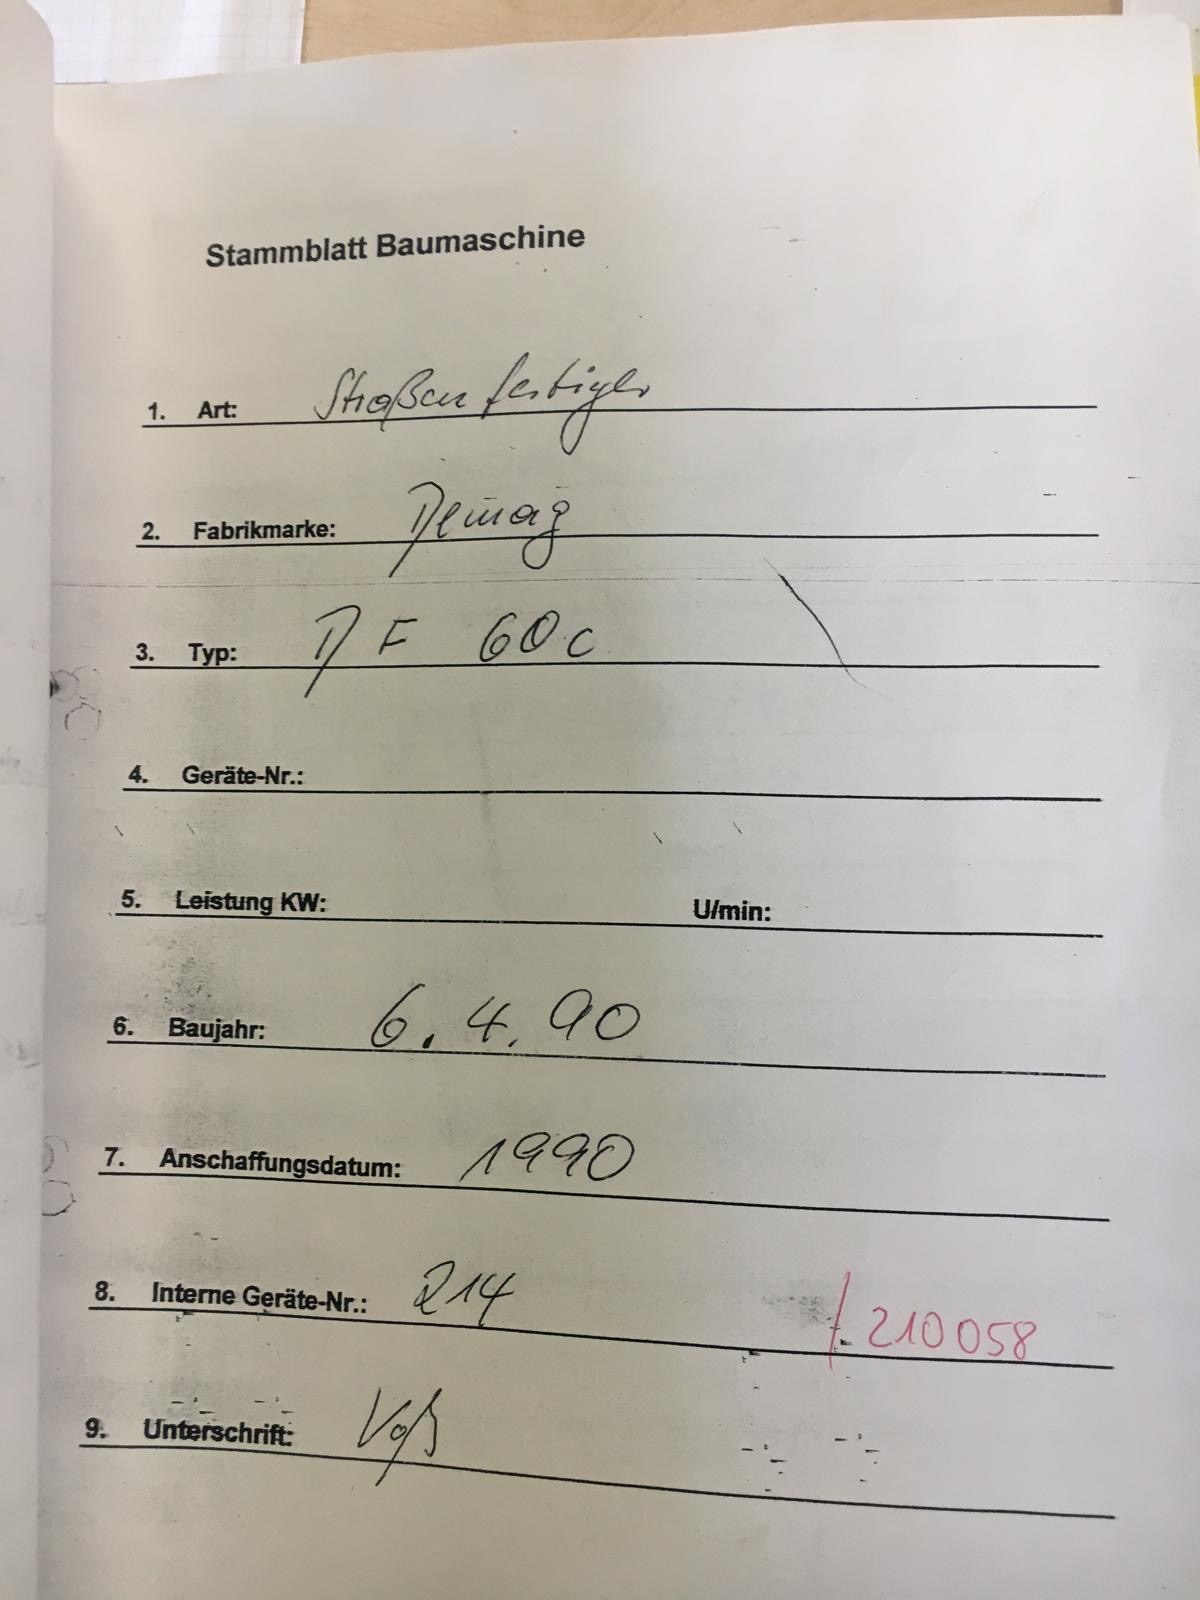 Stammblatt Baumaschine
1. Art: Straßenfertiger
2. Fabrikmarke: Demag
3. Typ: DF 60c
4. Geräte-Nr.:
5. Leistung KW: U/min:
6. Baujahr: 6.4.90
7. Anschaffungsdatum: 1990
8. Interne Geräte-Nr.: 214 / 210058
9. Unterschrift: Voß